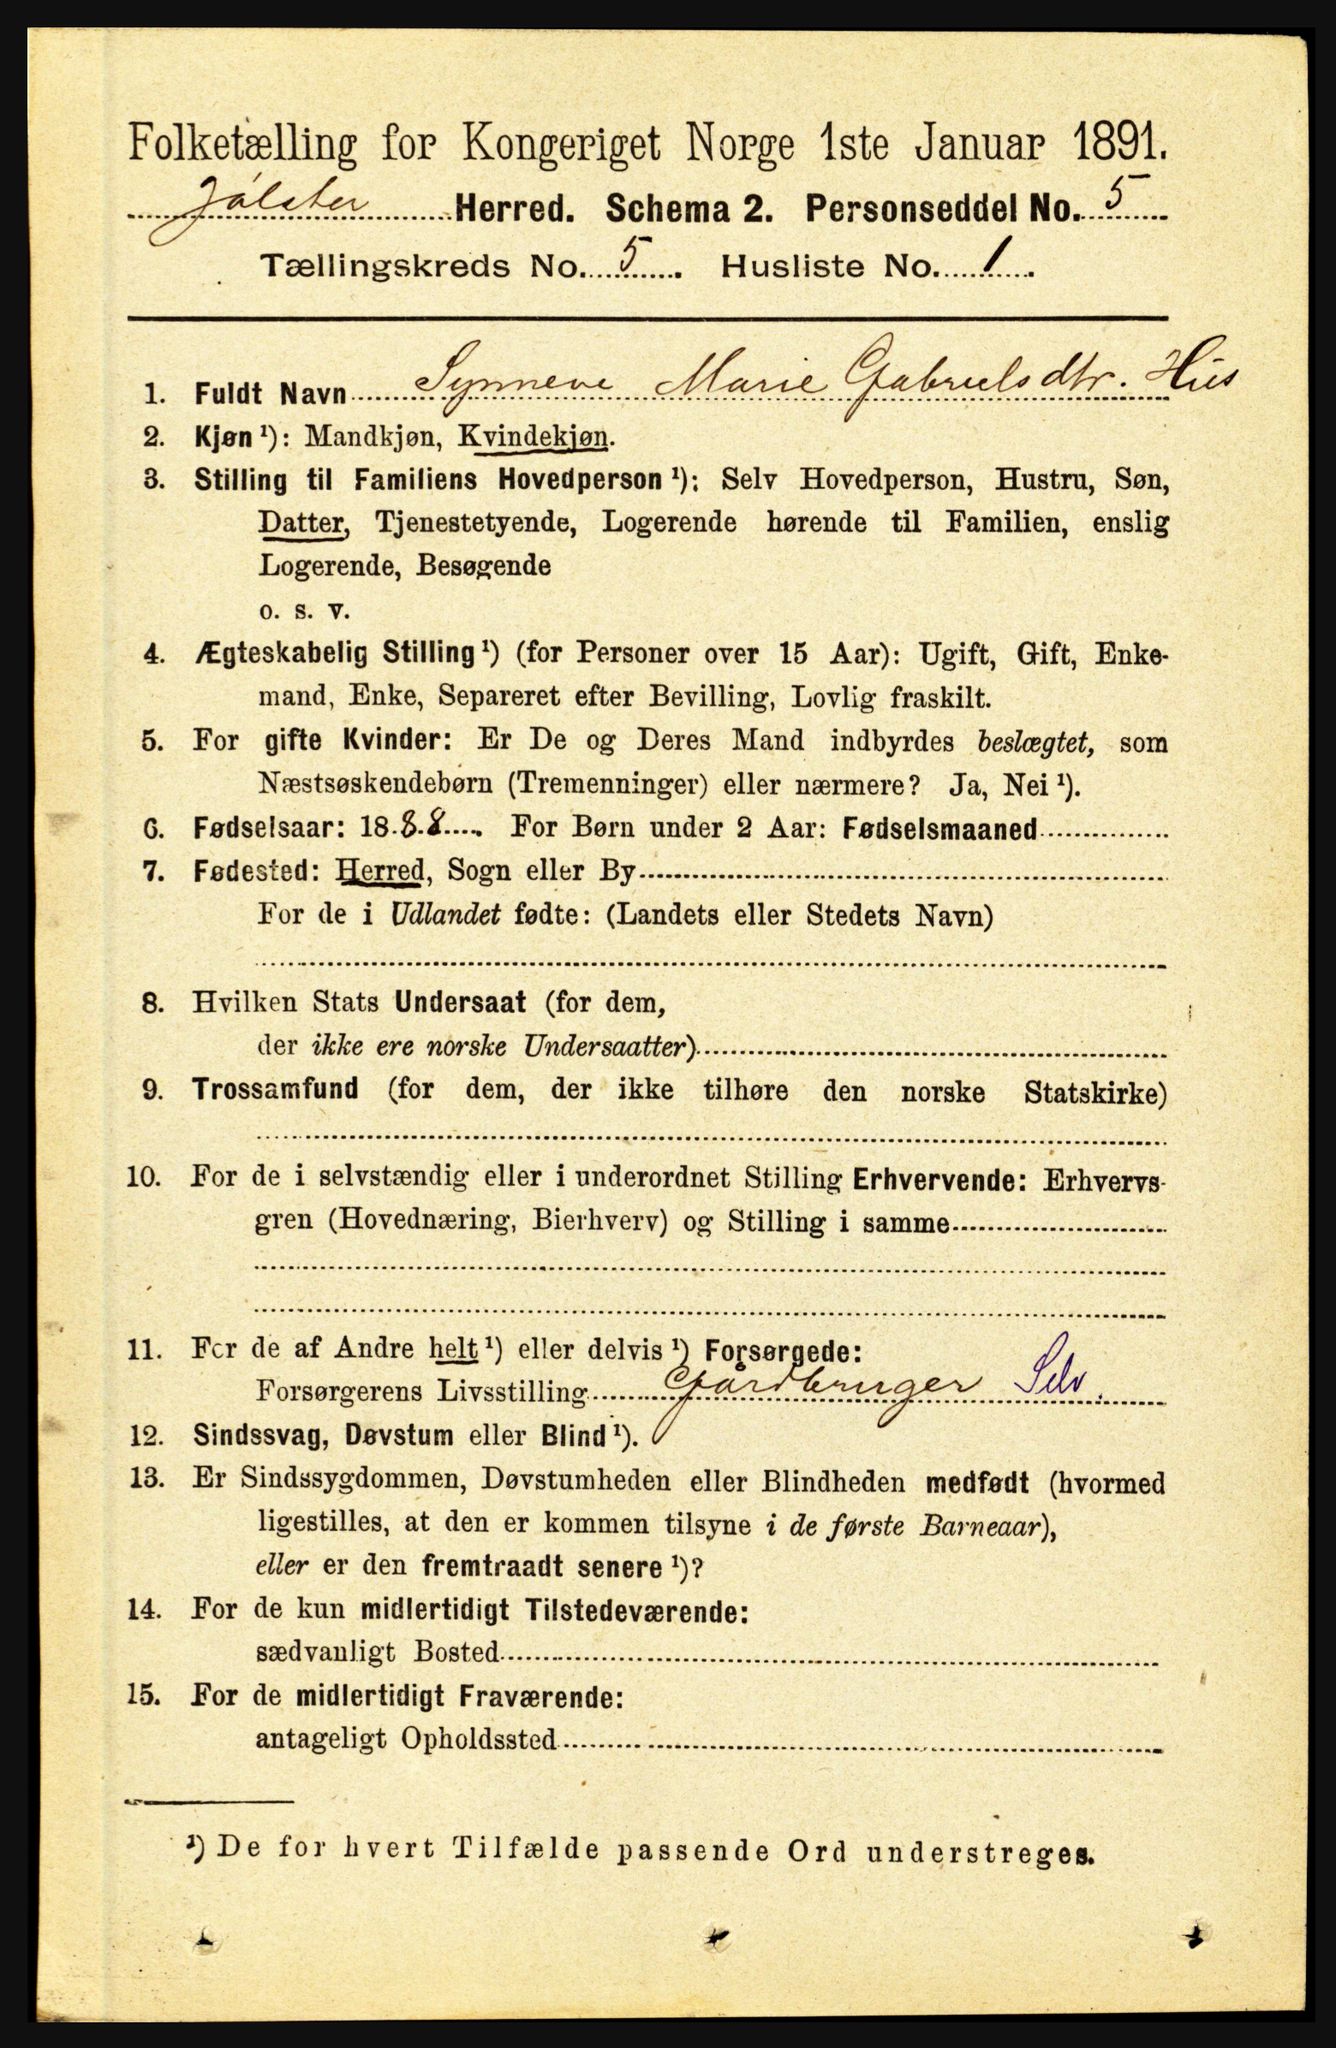 Folketælling for Kongeriget Norge 1ste Januar 1891.
Jølster Herred. Schema 2. Personseddel No. 5
Tællingskreds No. 5. Husliste No. 1.
1. Fuldt Navn Synneve Marie Gabrielsdtr. Hus
2. Kjøn ¹): Mandkjøn, Kvindekjøn.
3. Stilling til Familiens Hovedperson ¹): Selv Hovedperson, Hustru, Søn,
Datter, Tjenestetyende, Logerende hørende til Familien, enslig
Logerende, Besøgende
o. s. v.
4. Ægteskabelig Stilling ¹) (for Personer over 15 Aar): Ugift, Gift, Enke-
mand, Enke, Separeret efter Bevilling, Lovlig fraskilt.
5. For gifte Kvinder: Er De og Deres Mand indbyrdes beslægtet, som
Næstsøskendebørn (Tremenninger) eller nærmere? Ja, Nei ¹).
6. Fødselsaar: 1888. For Børn under 2 Aar: Fødselsmaaned
7. Fødested: Herred, Sogn eller By
For de i Udlandet fødte: (Landets eller Stedets Navn)
8. Hvilken Stats Undersaat (for dem,
der ikke ere norske Undersaatter)
9. Trossamfund (for dem, der ikke tilhøre den norske Statskirke)
10. For de i selvstændig eller i underordnet Stilling Erhvervende: Erhvervs-
gren (Hovednæring, Bierhverv) og Stilling i samme
11. For de af Andre helt ¹) eller delvis ¹) Forsørgede:
Forsørgerens Livsstilling Gårdbruger Selv.
12. Sindssvag, Døvstum eller Blind ¹).
13. Er Sindssygdommen, Døvstumheden eller Blindheden medfødt (hvormed
ligestilles, at den er kommen tilsyne i de første Barneaar),
eller er den fremtraadt senere ¹)?
14. For de kun midlertidigt Tilstedeværende:
sædvanligt Bosted
15. For de midlertidigt Fraværende:
antageligt Opholdssted
¹) De for hvert Tilfælde passende Ord understreges.